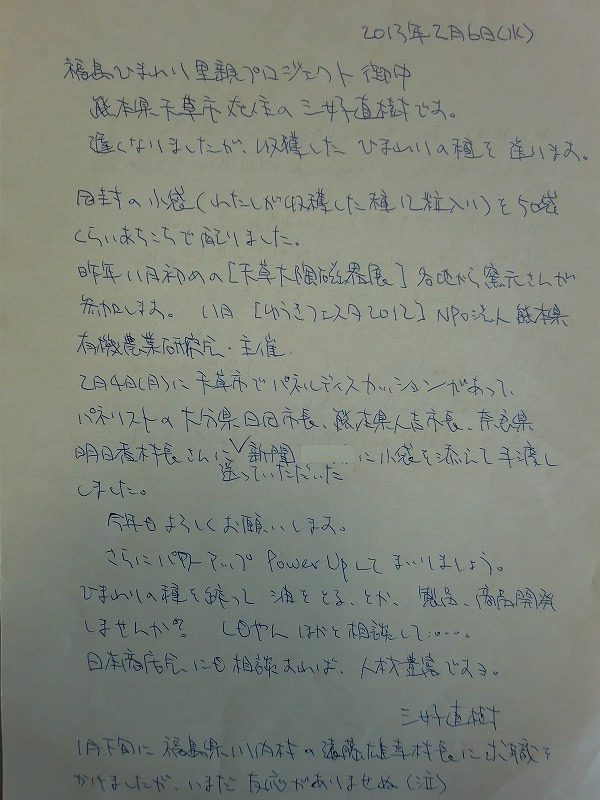 2013年2月6日(水)
福島ひまわり里親プロジェクト 御中
熊本県天草市在住の三好直樹です。
遅くなりましたが、収穫したひまわりの種を送ります。
同封の小袋(わたしが収穫した種12粒入り)を50袋
くらいあちこちで配りました。
昨年11月初めの[天草大陶磁器展]各地から窯元さんが
参加します。 11月[ゆうきフェスタ2012]NPO法人熊本県
有機農業研究会・主催
2月4日(月)に天草市でパネルディスカッションがあって、
パネリストの大分県 市長、熊本県人吉市長、奈良県
明日香村長さんに 新聞……に小袋を添えて手渡し
送っていただいた
しました。
今年もよろしくお願いします。
さらにパワーアップ Power Up してまいりましょう。
ひまわりの種を絞って油をとる、とか、製品、商品開発
しませんか? ほかと相談して……。
日本商店会にも相談あれば、人材豊富です。
三好直樹
1月下旬に福島県川内村の遠藤雄幸村長に求職を
かけましたが、いまだ反応がありませぬ(泣)